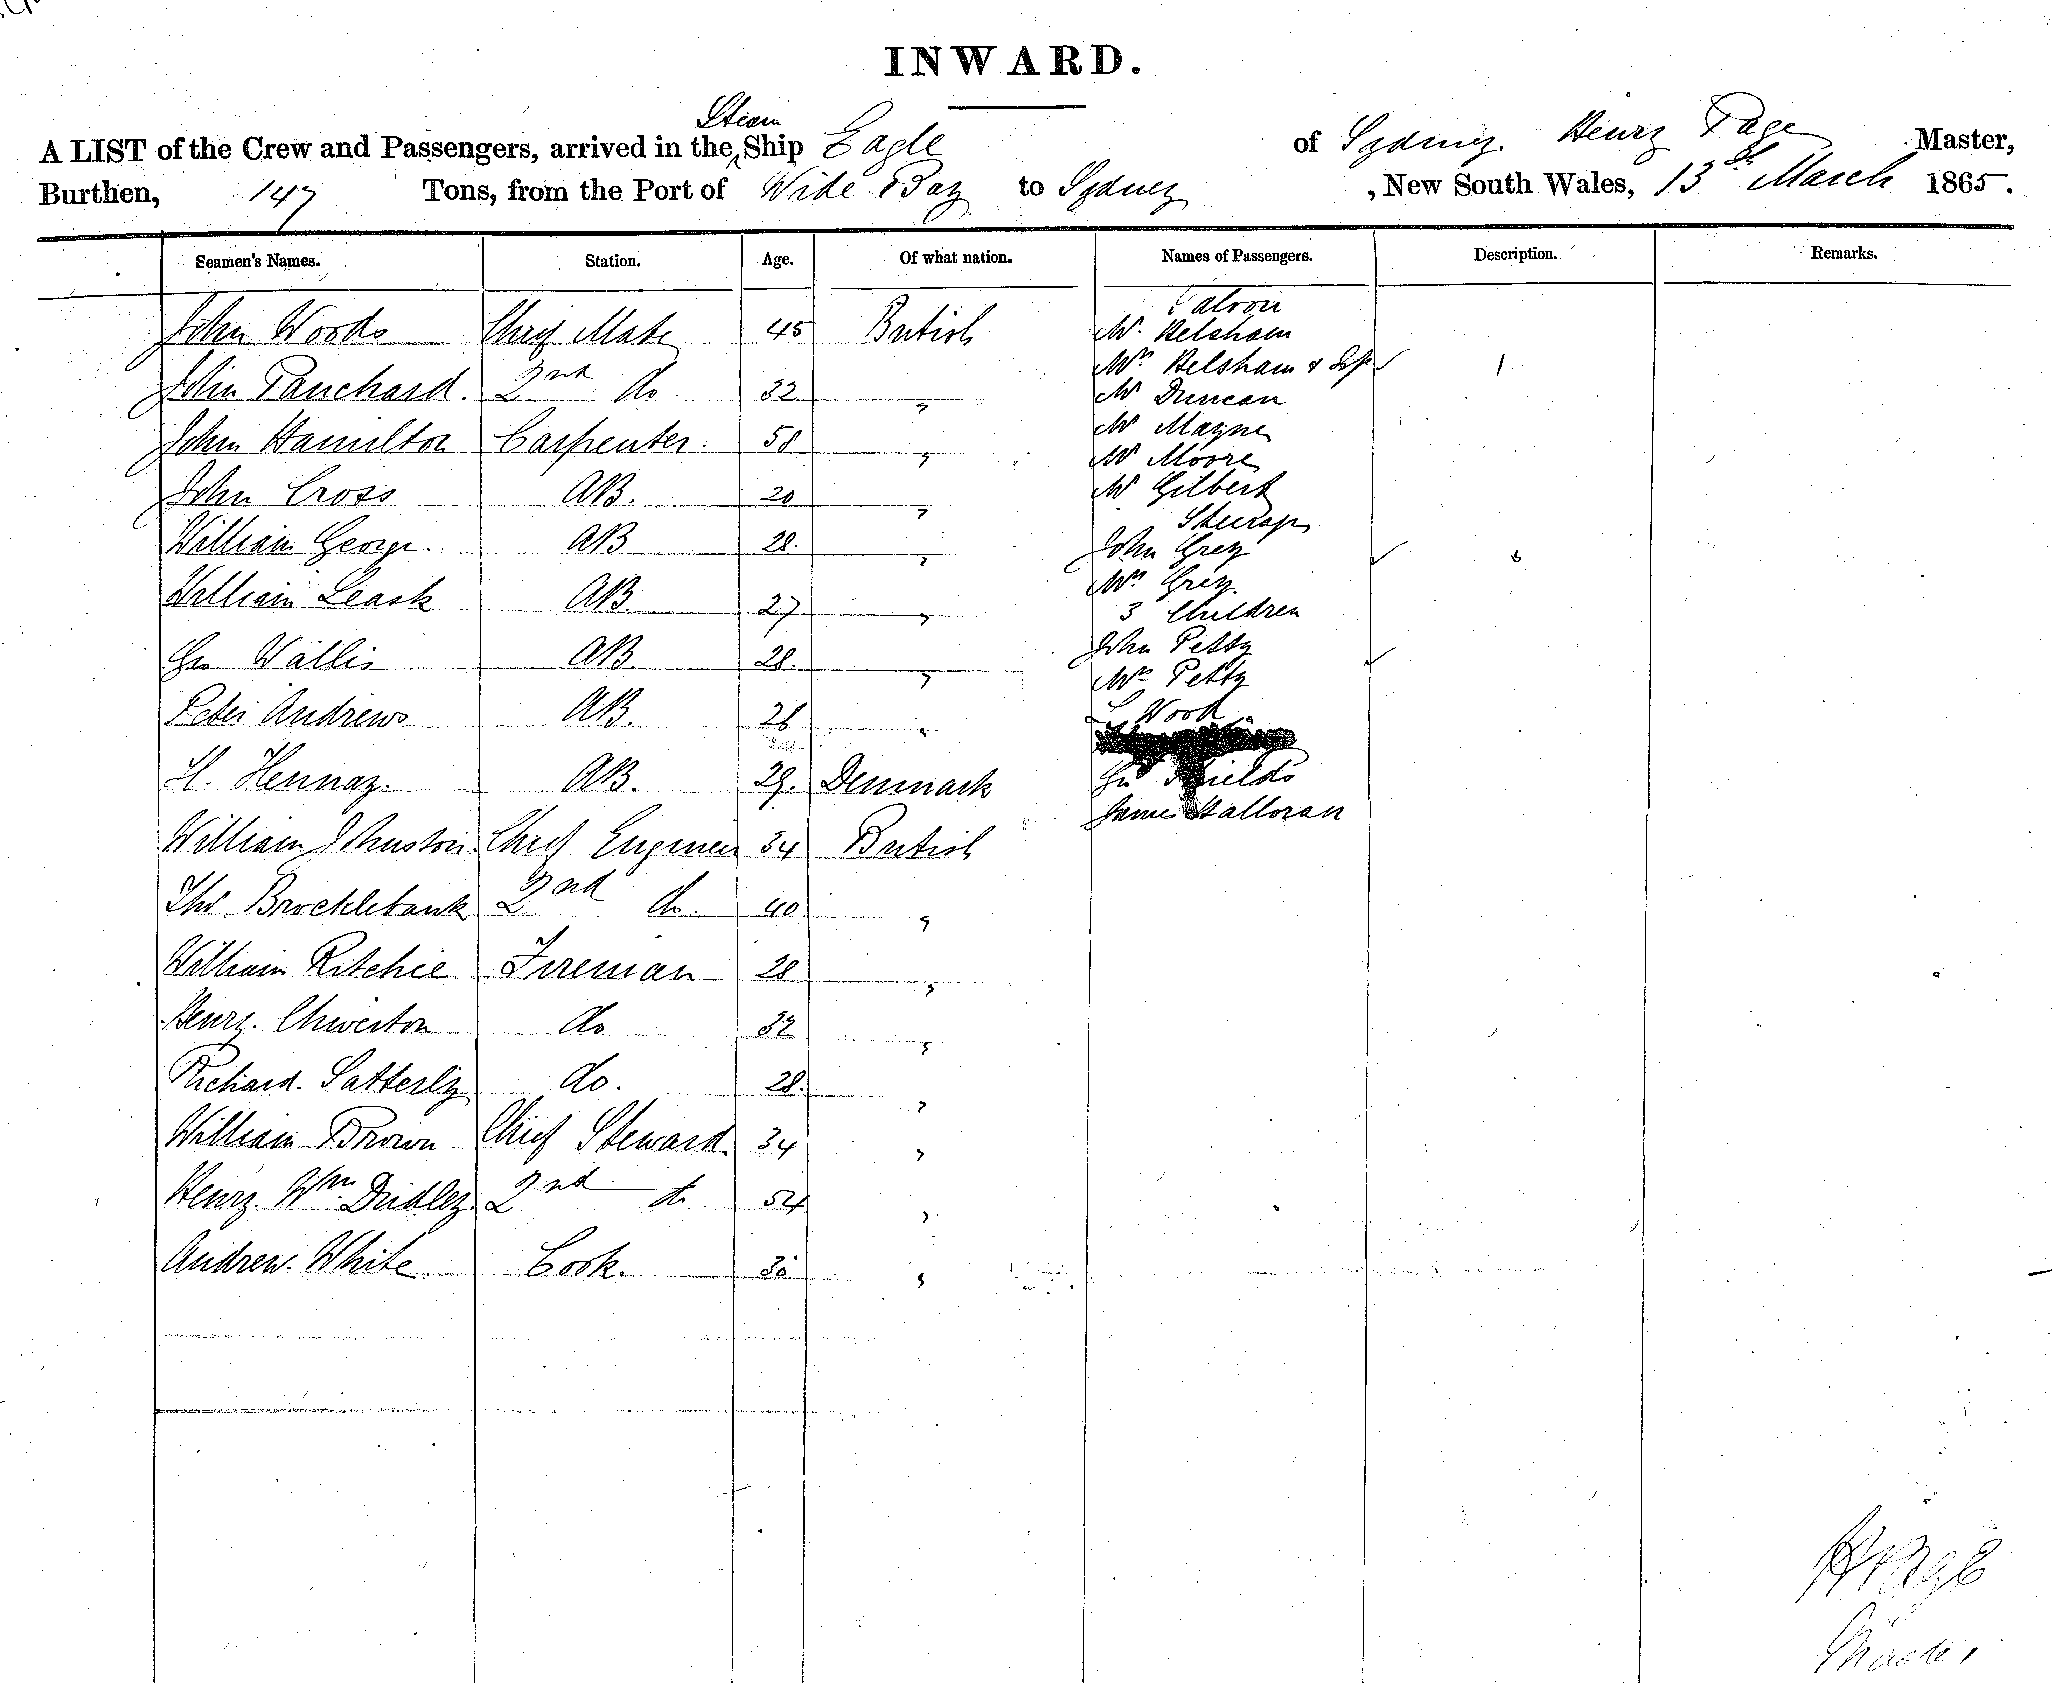 INWARD.
A LIST of the Crew and Passengers, arrived in the Steam Ship Eagle of Sydney. Henry Page Master,
Burthen, 147 Tons, from the Port of Wide Bay to Sydney , New South Wales, 13th March 1865.
Seamen's Names. Station. Age. Of what nation. Names of Passengers. Description. Remarks.
Saloon
John Woods Chief Mate 45 British Mr. Helsham
Mrs Helsham &
John Panchard. 2nd do 32 " Mr Duncan
Mr Mayne
John Hamilton Carpenter. 58 " Mr Moore
John Cross AB. 20 " Mr Gilbert
Steerage
William George. AB 28. " John Grey
Mrs Grey.
William Leask AB 27 " 3 Children
John Petty
Geo Wallis AB. 28. " Mrs Petty
Peter Andrews AB. 26 " Wood
H. Hennay. AB. 29. Denmark Geo Shields
James Halloran
William Johnston Chief Engineer 34 British
Thos Brocklebank 2nd do. 40 "
William Ritchie Fireman 28 "
Henry. Chiverton do 32 "
Richard. Satterly do. 28. "
William Brown Chief Steward. 34 "
Henry. Wm Dudley. 2nd do 54 "
Andrew. White Cook. 30 "
H Page
Master